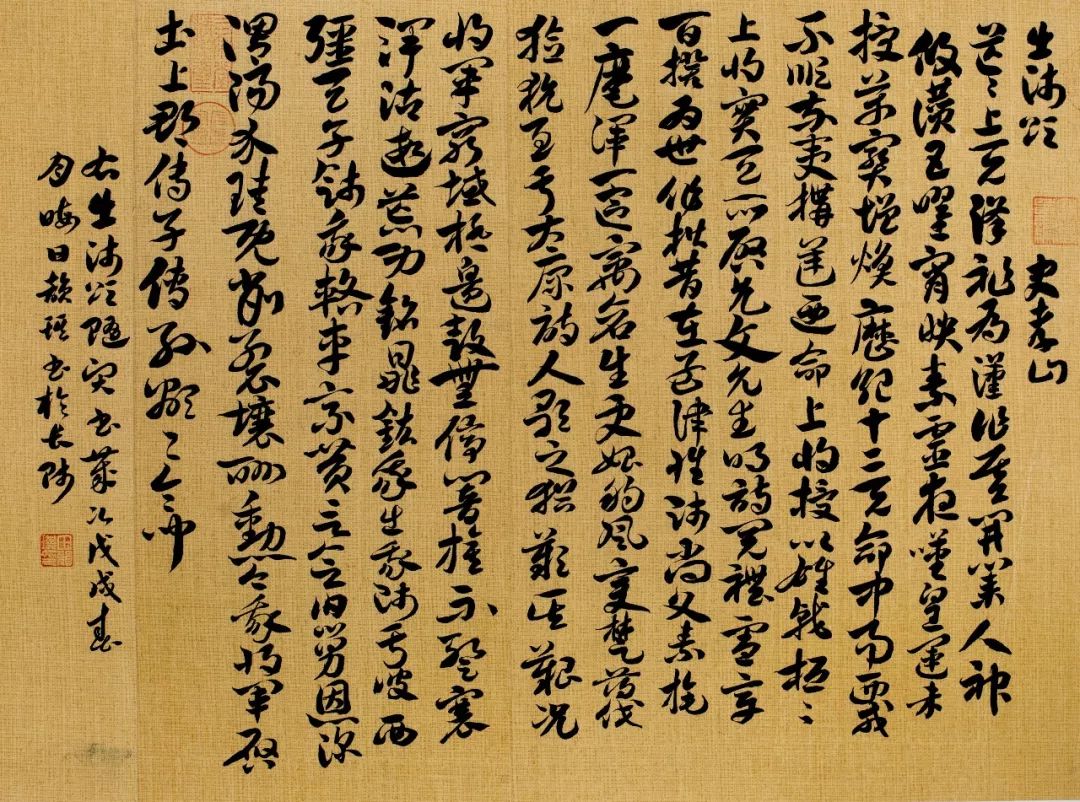 出師頌　史孝山
茫〻上天降祚為漢作基開業人神
攸讚五曜宵映素靈夜嘆皇運来
授萬寶增煥歷紀十二天命中易西戎
不順東夷構逆迺命上將授以雄戟桓〻
上將實天所啓允文允武明詩閱禮憲章
百揆為世作楷昔在孟津惟師尚父素旄
一麾渾一區寓蒼生更始朔風變楚薄伐
獫狁至于太原詩人歌之猶歎其艱況
我將軍窮域極邊鼓無停響旗不蹔褰
澤沾遐荒功銘鼎鉉我出我師于彼西
疆天子餞我輅車乘黃言念舊舅恩深
渭陽介珪既削裂壤酬勳今我將軍啓
土上郡傳子傳孫顯〻令問
右出師頌隨書歲次戊戌春
月晦日書於長